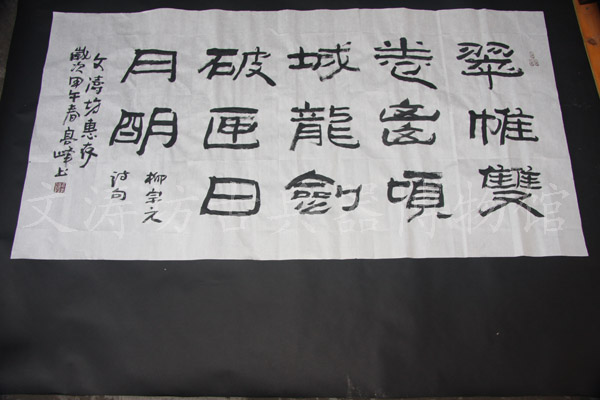 翠帷雙
卷頃
城龍劍
破匣日
月明
柳宗元
诗句
文濤坊惠存
歲次甲午春峰上
文涛坊古兵器博物馆